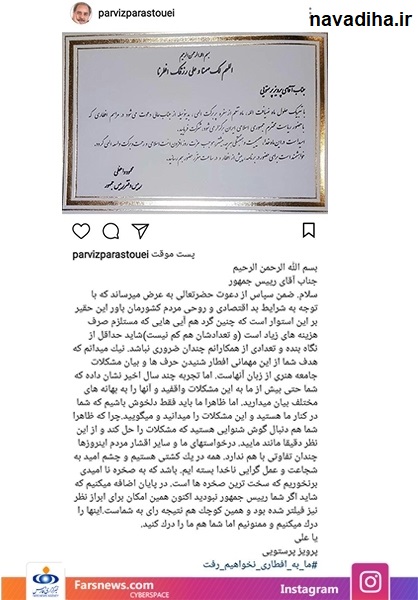 parvizparastouei
navadiha.ir
بسم الله الرحمن الرحیم
اللهم لک صمنا و علی رزقک افطرنا
جناب آقای پرویز پرستویی
parvizparastouei پست موقت
بسم الله الرحمن الرحیم
جناب آقای رییس جمهور
سلام. ضمن سپاس از دعوت حضرتعالی به عرض میرساند که با
توجه به شرایط بد اقتصادی و روحی مردم کشورمان باور این حقیر
بر این استوار است که چنین گرد هم آیی هایی که مستلزم صرف
هزینه های زیاد است (و تعدادشان هم کم نیست)شاید حداقل از
نگاه بنده و تعدادی از همکارانم چندان ضروری نباشد. نیك میدانم که
هدف شما از این مهمانی افطار شنیدن حرف ها و بیان مشکلات
جامعه هنری از زبان آنهاست. اما تجربه چند سال اخیر نشان داده که
شما حتی بیش از ما به این مشکلات واقفید و آنها را به بهانه های
مختلف بیان میدارید. اما ظاهرا ما باید فقط دلخوش باشیم که شما
در کنار ما هستید و این مشکلات را میدانید و میگویید.چرا که ظاهرا
شما هم دنبال گوش شنوایی هستید که مشکلات را حل کند و از این
نظر دقیقا مانند مایید. درخواستهای ما و سایر اقشار مردم اینروزها
چندان تفاوتی با هم ندارد. همه در یك کشتی هستیم و چشم امید به
شجاعت و عمل گرایی ناخدا بسته ایم. باشد که به صخره نا امیدی
برنخوریم که سخت ترین صخره ها است. در پایان اضافه میکنیم که
شاید اگر شما رییس جمهور نبودید اکنون همین امکان برای ابراز نظر
نیز فیلتر شده بود و همین کوچك هم نتیجه رای به شماست.اینها را
درك میکنیم و ممنونیم اما شما هم ما را درك کنید.
یا علی
پرویز پرستویی
#ما_به_افطاری_نخواهیم_رفت
Farsnews.com
CYBERSPACE
Instagram